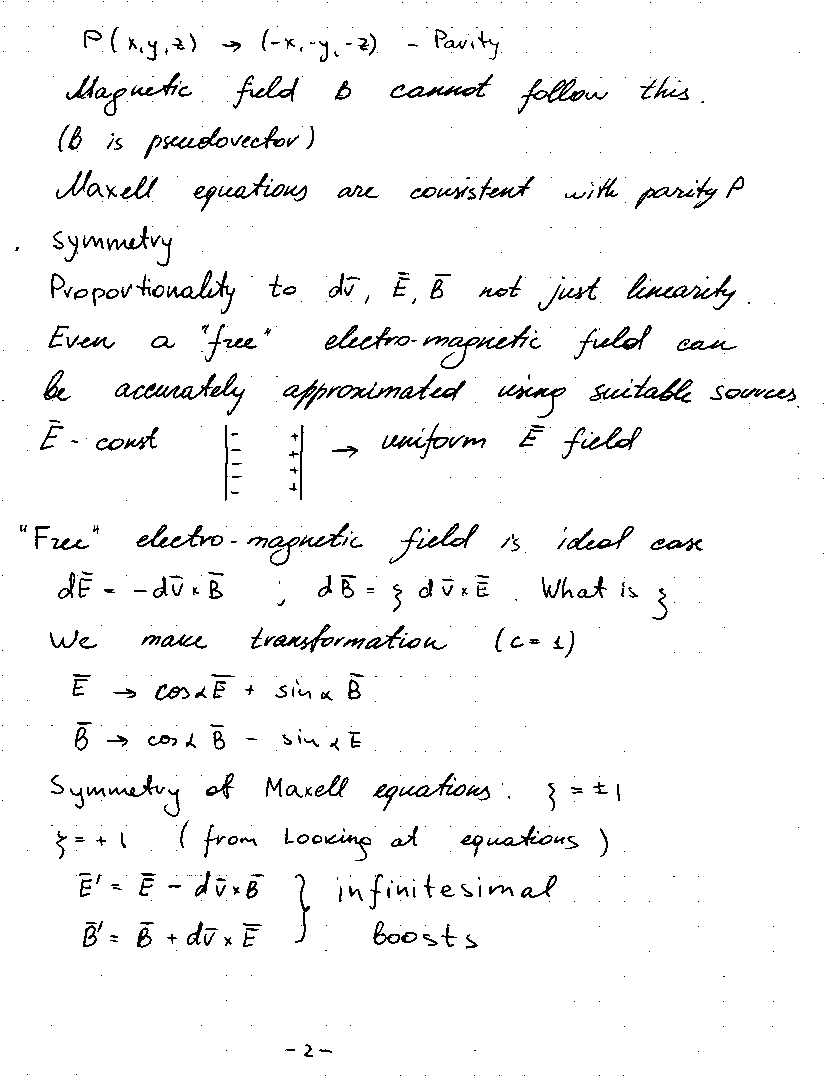 P(x,y,z) → (-x,-y,-z) - Parity
Magnetic field B cannot follow this.
(B is pseudovector)
Maxell equations are consistent with parity P
symmetry
Proportionality to dv̄, Ē, B̄ not just linearity.
Even a "free" electro-magnetic field can
be accurately approximated using suitable sources.
Ē - const |- - - - +  + + +| → uniform Ē field
"Free" electro-magnetic field is ideal case
dĒ = -dv̄ × B̄ ; dB̄ = ξ dv̄ × Ē. What is ξ
We make transformation (c = 1)
Ē → cos α Ē + sin α B̄
B̄ → cos α B̄ - sin α Ē
Symmetry of Maxell equations. ξ = ±1
ξ = +1 (from Looking at equations)
Ē' = Ē - dv̄ × B̄ } infinitesimal
B̄' = B̄ + dv̄ × Ē } boosts
- 2 -